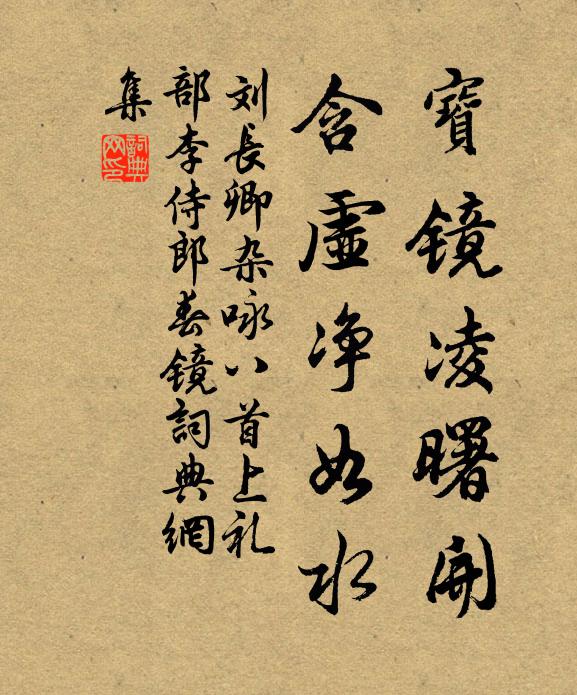 寶鏡凌曙開
含虛净如水
刘長卿杂咏八首上礼
部李侍郎春鏡詞典網
集
詞典
网印